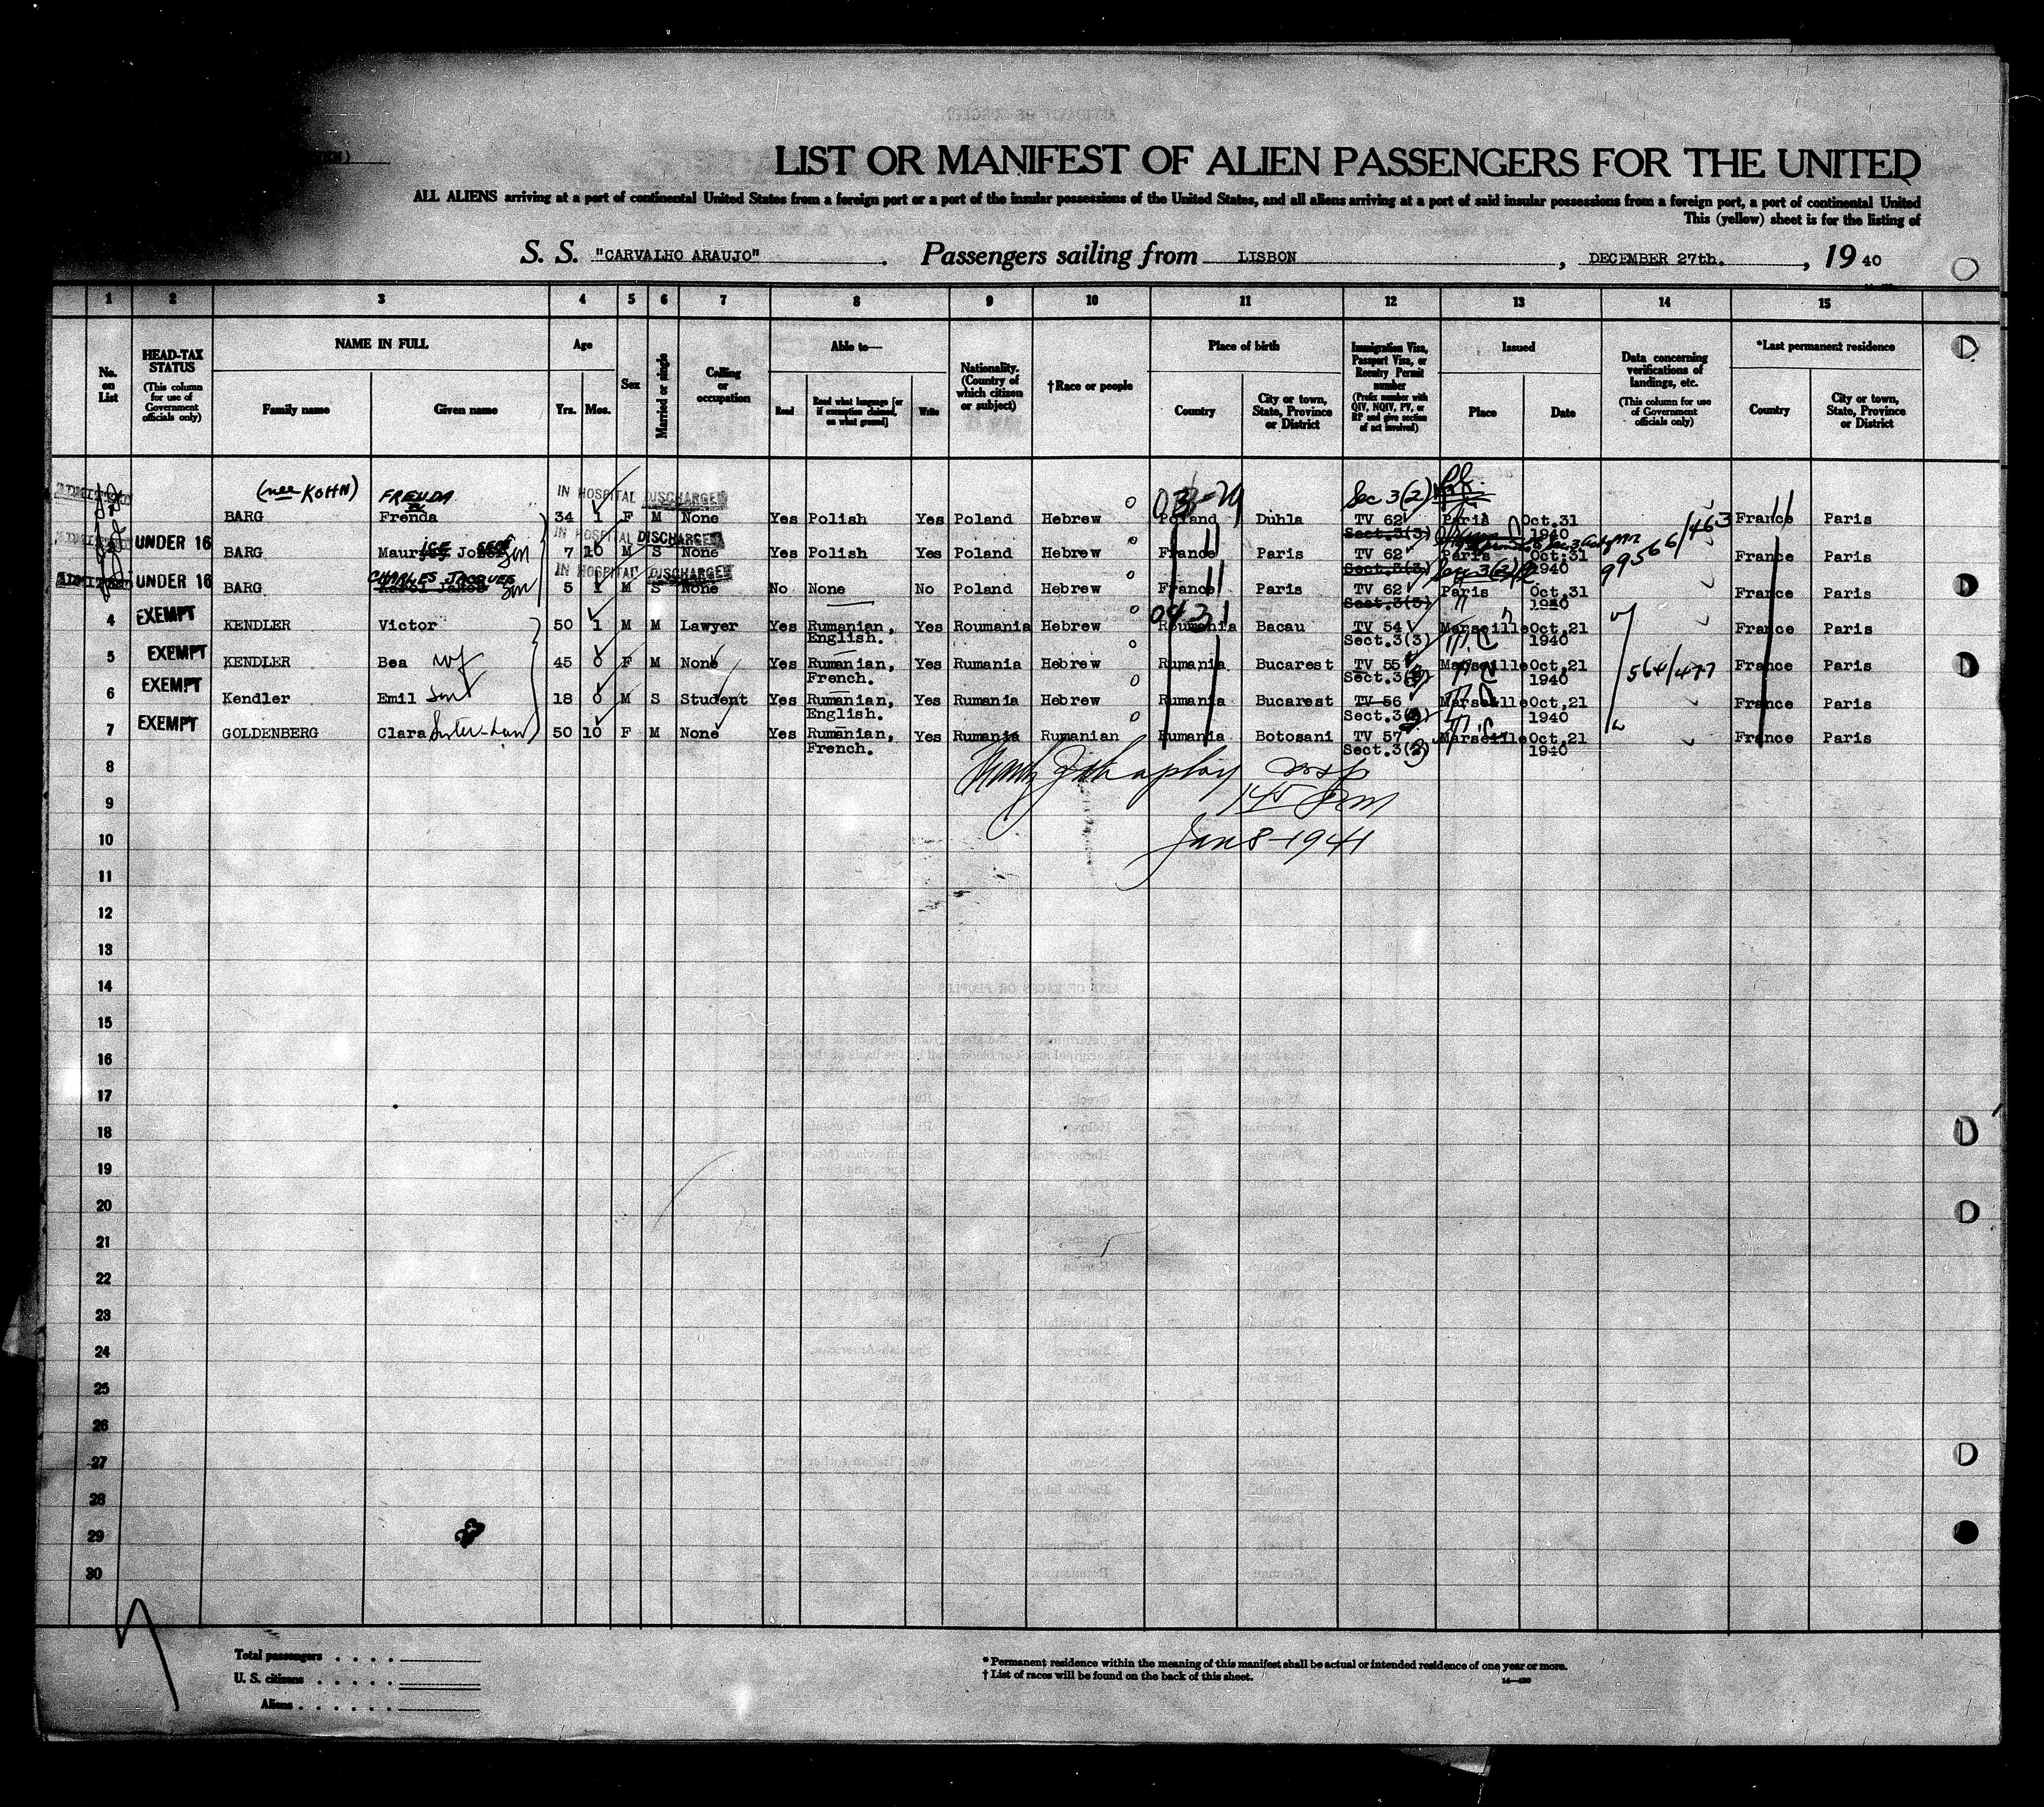 LIST OR MANIFEST OF ALIEN PASSENGERS FOR THE UNITED
ALL ALIENS arriving at a port of continental United States from a foreign port or a port of the insular possessions of the United States, and all aliens arriving at a port of said insular possessions from a foreign port, a port of continental United
This (yellow) sheet is for the listing of
S. S. "CARVALHO ARAUJO". Passengers sailing from LISBON, DECEMBER 27th., 19 40
1 2 3 4 5 6 7 8 9 10 11 12 13 14 15
No. on List
HEAD-TAX STATUS (This column for use of Government officials only)
NAME IN FULL Family name Given name
Age Yrs. Mos.
Sex
Married or single
Calling or occupation
Able to— Read Read what language [or if exemption claimed, on what ground] Write
Nationality. (Country of which citizen or subject)
†Race or people
Place of birth Country City or town, State, Province or District
Immigration Visa, Passport Visa, or Reentry Permit number (Prefix number with QIV, NQIV, PV, or RP and give section of act involved)
Issued Place Date
Data concerning verifications of landings, etc. (This column for use of Government officials only)
*Last permanent residence Country City or town, State, Province or District
(nee KOHN) FREUDA IN HOSPITAL DISCHARGED Sec 3(2)
BARG Frenda 34 1 F M None Yes Polish Yes Poland Hebrew Poland Duhla TV 62 Paris Oct.31 France Paris
IN HOSPITAL DISCHARGED Sect.3(3) 1940
UNDER 16 BARG Maurice Jo son 7 10 M S None Yes Polish Yes Poland Hebrew France Paris TV 62 Paris Oct.31 99566/463 France Paris
CHARLES JACQUES IN HOSPITAL DISCHARGED Sect.3(3) Sec 3(2) 1940
ADMITTED UNDER 16 BARG Karol Jakob son 5 1 M S None No None No Poland Hebrew France Paris TV 62 Paris Oct.31 France Paris
Sect.3(3) 1940
4 EXEMPT KENDLER Victor 50 1 M M Lawyer Yes Rumanian, Yes Roumania Hebrew Roumania Bacau TV 54 Marseille Oct,21 France Paris
English. Sect.3(3) 1940
5 EXEMPT KENDLER Bea wf 45 0 F M None Yes Rumanian, Yes Rumania Hebrew Rumania Bucarest TV 55 Marseille Oct,21 564/477 France Paris
French. Sect.3( ) 1940
6 EXEMPT Kendler Emil son 18 0 M S Student Yes Rumanian, Yes Rumania Hebrew Rumania Bucarest TV 56 Marseille Oct,21 France Paris
English. Sect.3( ) 1940
7 EXEMPT GOLDENBERG Clara Sister-Law 50 10 F M None Yes Rumanian, Yes Rumania Rumanian Rumania Botosani TV 57 Marseille Oct,21 France Paris
French. Sect.3( ) 1940
8
9
145 pm
10 Jan 8-1941
11
12
13
14
15
16
17
18
19
20
21
22
23
24
25
26
27
28
29
30
Total passengers . . . .
U. S. citizens . . . . .
Aliens . . . . . .
* Permanent residence within the meaning of this manifest shall be actual or intended residence of one year or more.
† List of races will be found on the back of this sheet.